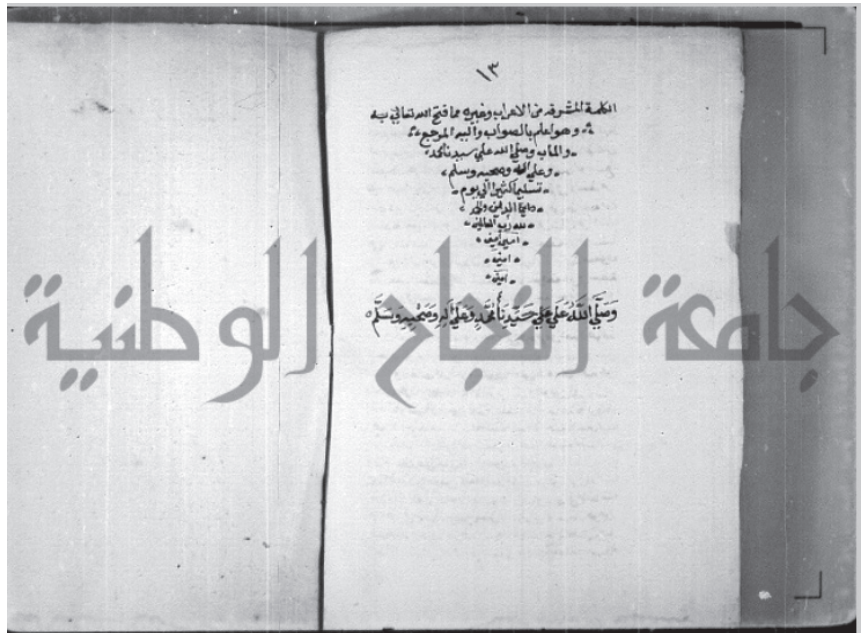 ١٣
الكلمة المشرفه من الاعراب وغيره مما فتح الله تعالى به
وهو اعلم بالصواب واليه المرجع
والماب وصلى الله على سيدنا محمد
وعلى اله وصحبه وسلم
تسليما كثيرا الى يوم
الدين
لله رب العالمين
امين امين
امين
امين
وَصَلَّى اللَّهُ عَلَى عَلَي سَيِّدِنَا مُحَمَّدٍ وَعَلَى آلِهِ وَصَحْبِهِ وَسَلَّم
جامعة النجاح الوطنية